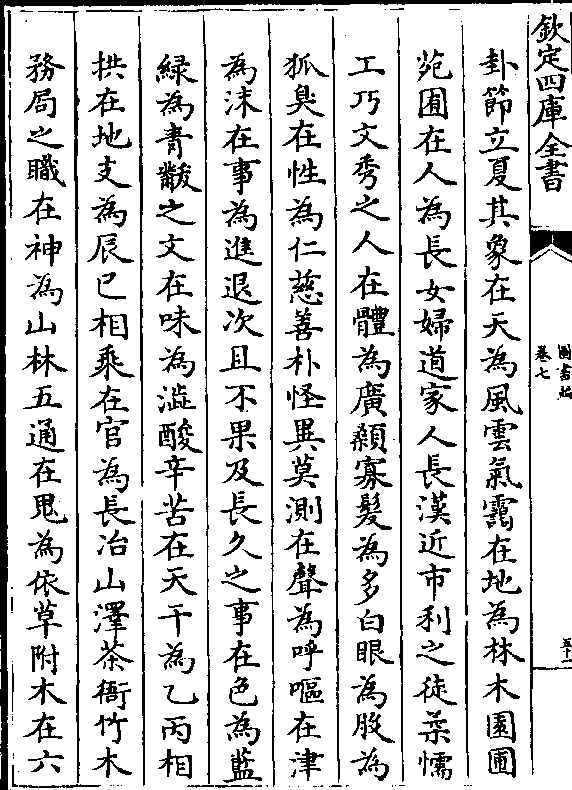 欽定四庫全書
圖書編
卷七
卦節立夏其象在天為風雲氣靄在地為林木園圃
苑囿在人為長女婦道家人長漢近市利之徒柔懦
工巧文秀之人在體為廣顙寡髮為多白眼為股為
狐臭在性為仁慈善朴怪異莫測在聲為呼嘔在津
為沫在事為進退次且不果及長久之事在色為藍
緑為青黻之文在味為澁酸辛苦在天干為乙丙相
拱在地支為辰巳相乘在官為長冶山澤茶衙竹木
務局之職在神為山林五通在鬼為依草附木在六